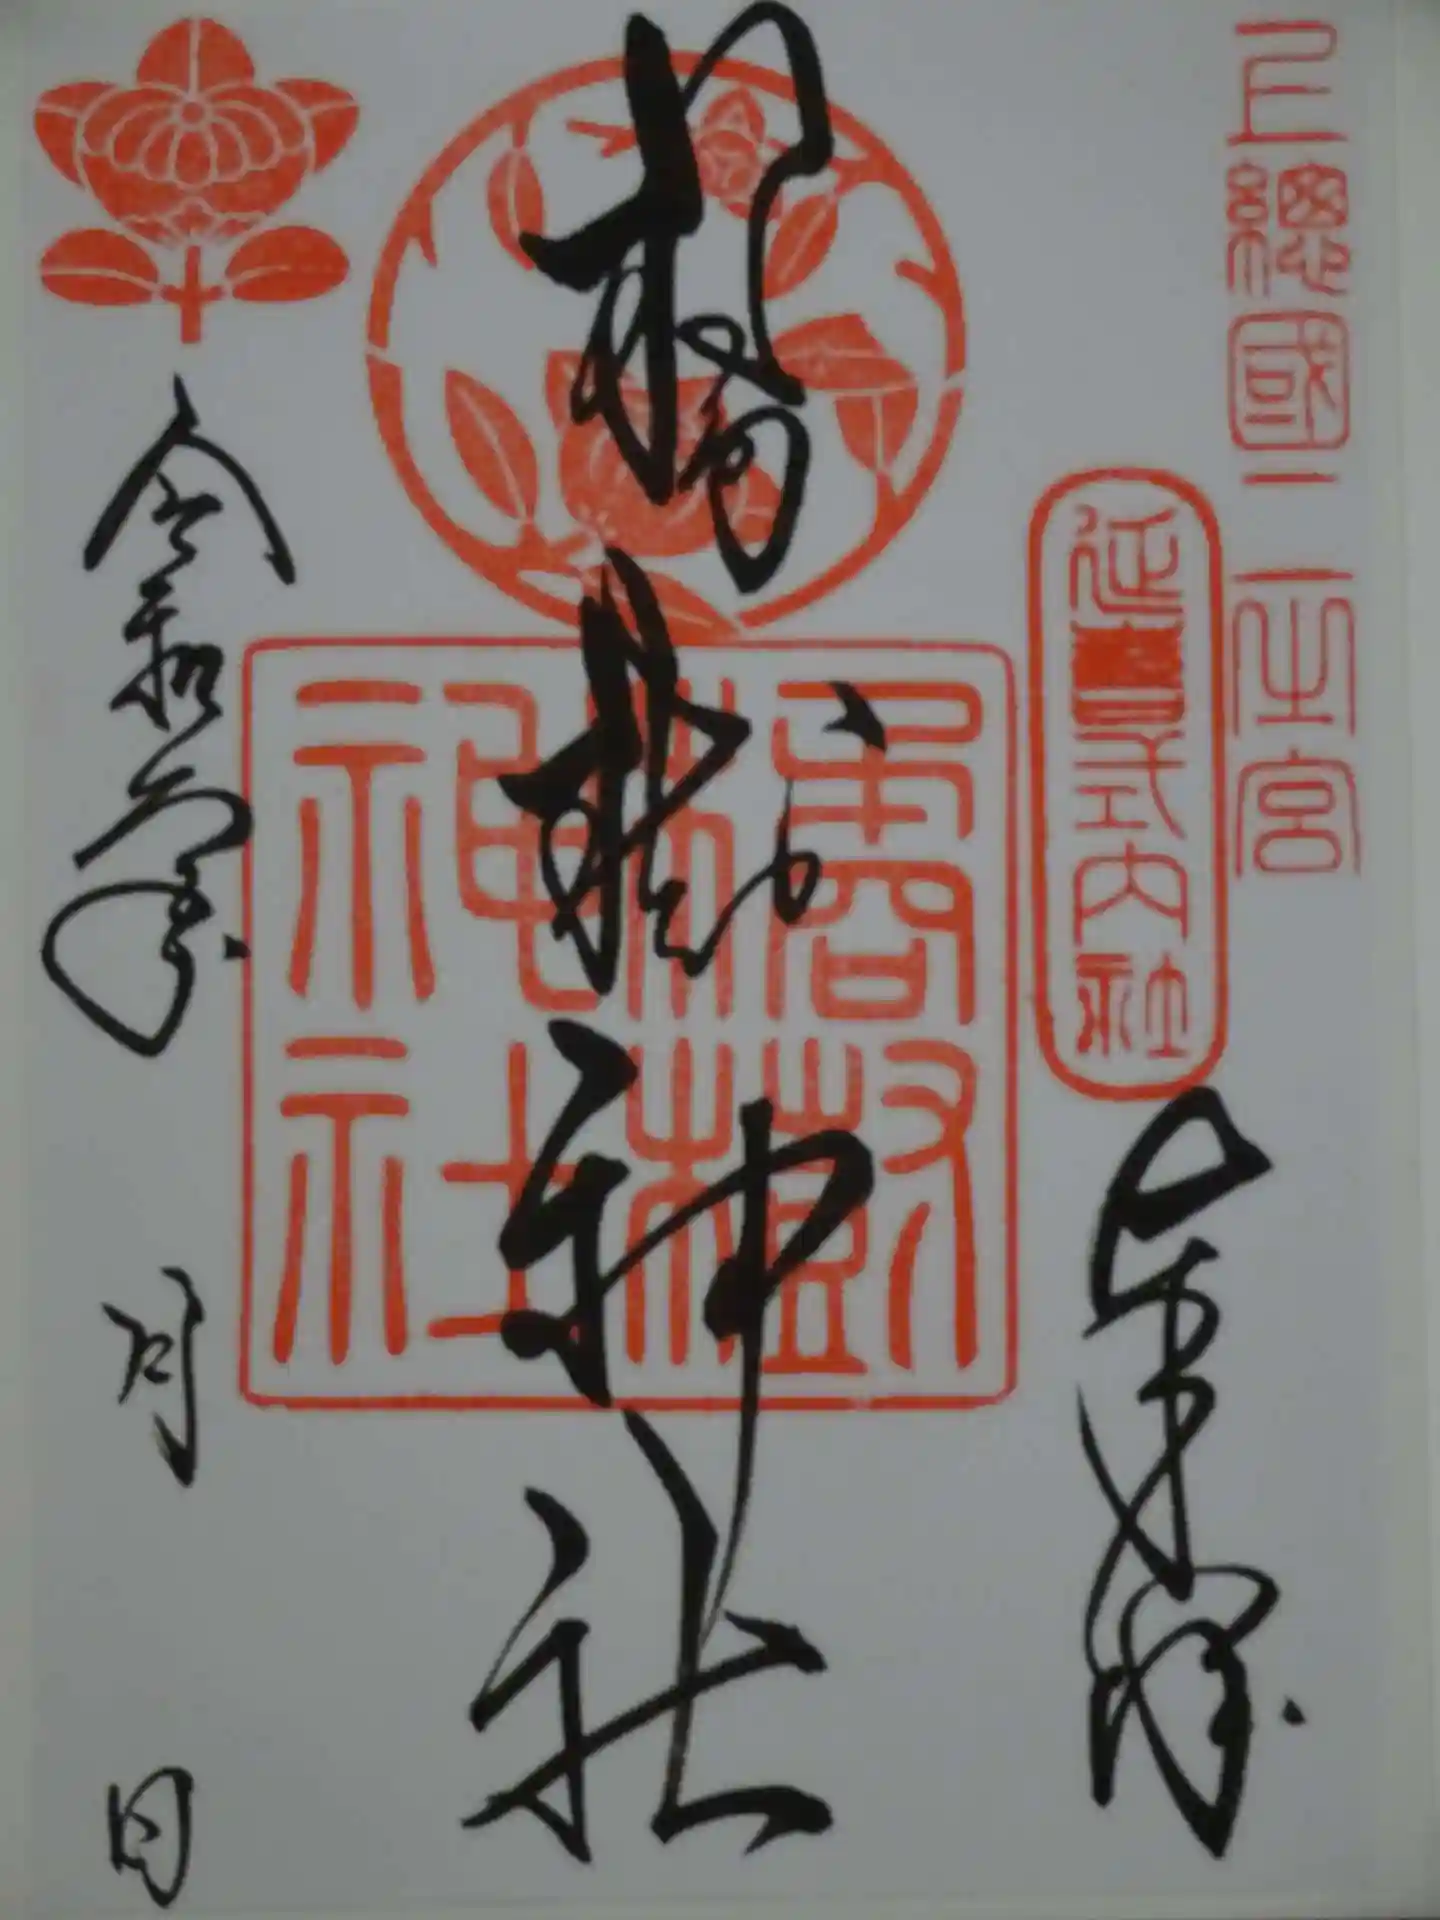 上總國二之宮
延喜式内社
奉拝
橘樹神社
橘樹神社
令和六年
月
日